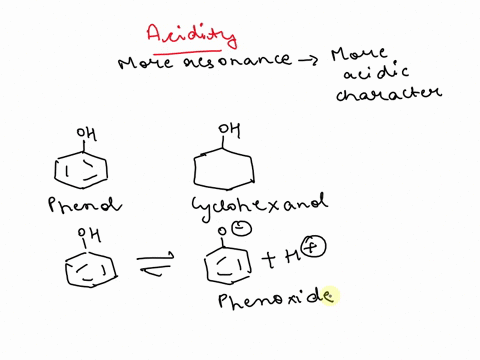 Acidity
More resonance → More acidic character
OH OH
Phenol Cyclohexanol
OH ⇌ O⊖ + H⊕
Phenoxide